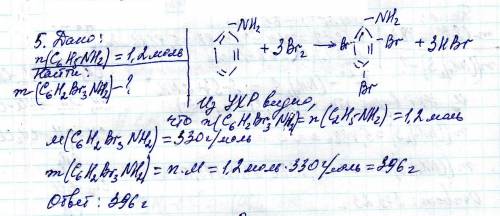 5. Дано:
n(C₆H₅NH₂) = 1,2 моль
Найти:
m(C₆H₂Br₃NH₂) - ?
NH₂ + 3Br₂ → NH₂ Br Br Br + 3HBr
Из УХР видно,
что n(C₆H₂Br₃NH₂) = n(C₆H₅NH₂) = 1,2 моль
M(C₆H₂Br₃NH₂) = 330 г/моль
m(C₆H₂Br₃NH₂) = n·M = 1,2 моль·330 г/моль = 396 г
Ответ: 396 г